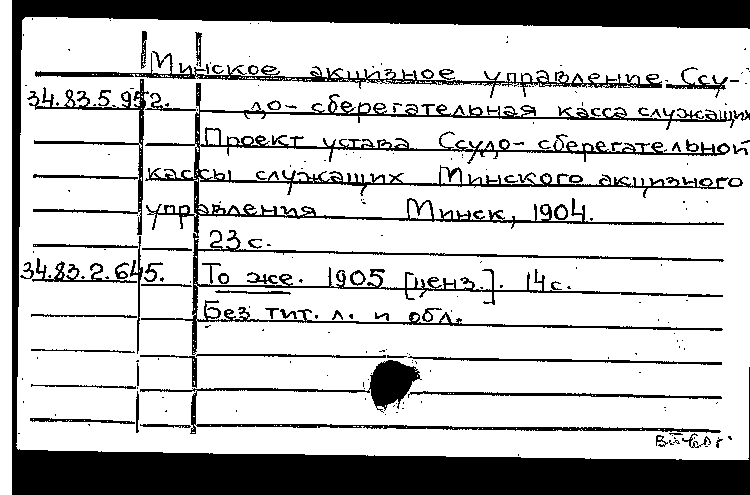 Минское акцизное управление. Ссу-
34.83.5.952. до-сберегательная касса служащих
Проект устава Ссудо-сберегательной
кассы служащих Минского акцизного
управления Минск, 1904.
23 с.
34.83.2.645. То же. 1905 [ценз.]. 14 с.
Без тит. л. и обл.